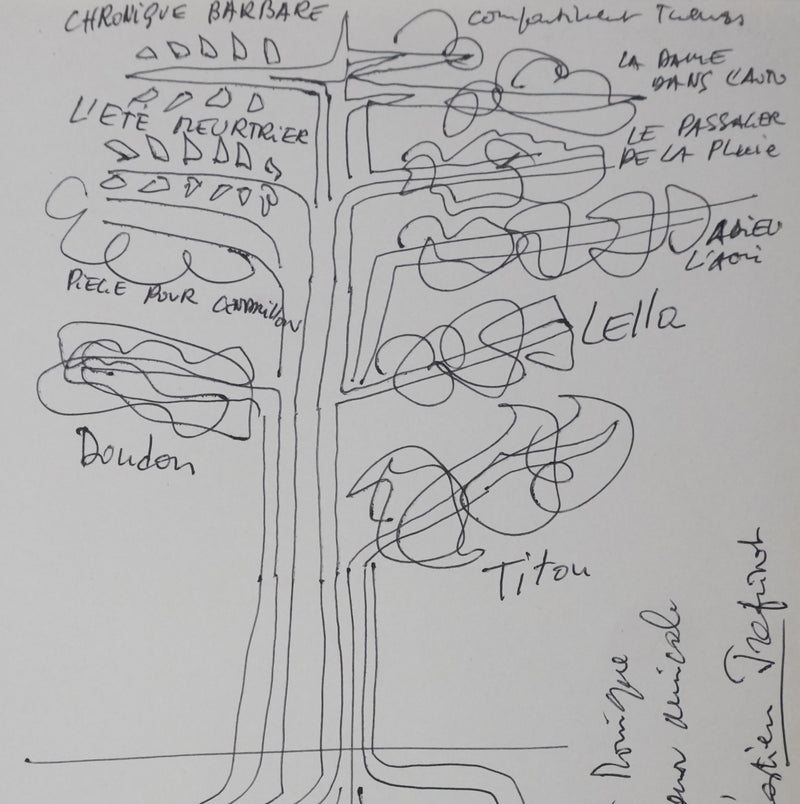 CHRONIQUE BARBARE
compartiment Tueurs
LA DAME
DANS L'AUTO
L'ETÉ MEURTRIER
LE PASSAGER
DE LA PLUIE
ADIEU
L'AMI
PIEGE POUR CENDRILLON
LEllA
Doudou
Titou
Monique
amicale